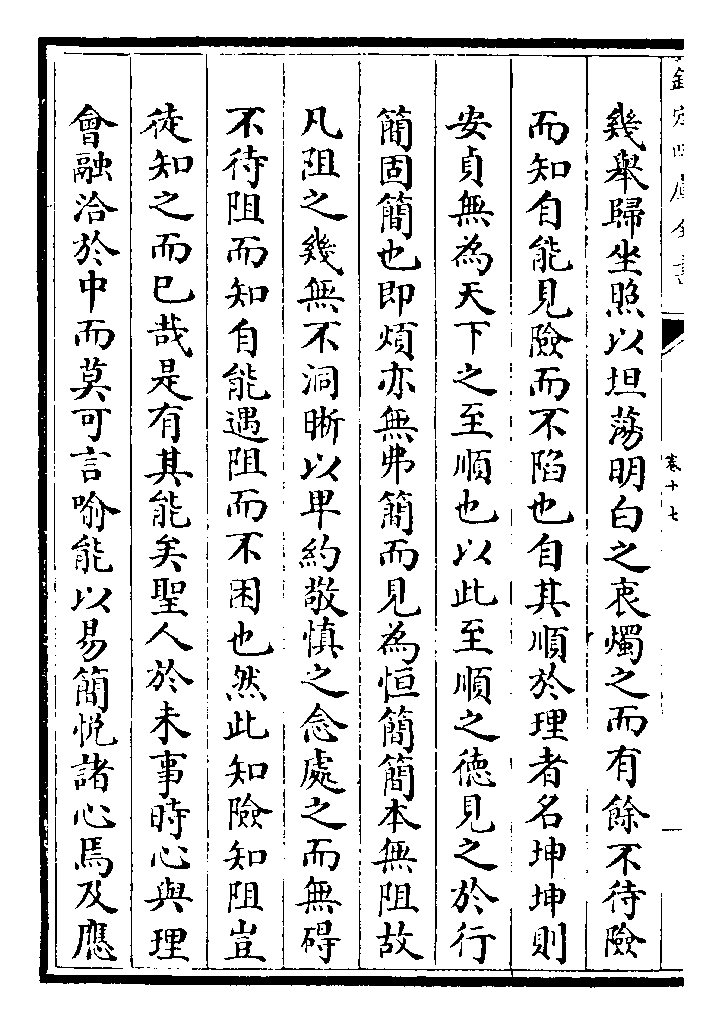 欽定四庫全書
卷十七
幾舉歸坐照以坦蕩明白之衷燭之而有餘不待險
而知自能見險而不陷也自其順於理者名坤坤則
安貞無為天下之至順也以此至順之德見之於行
簡固簡也即煩亦無弗簡而見為恒簡簡本無阻故
凡阻之幾無不洞晰以卑約敬慎之念處之而無碍
不待阻而知自能遇阻而不困也然此知險知阻豈
徒知之而已哉是有其能矣聖人於未事時心與理
會融洽於中而莫可言喻能以易簡悅諸心焉及應